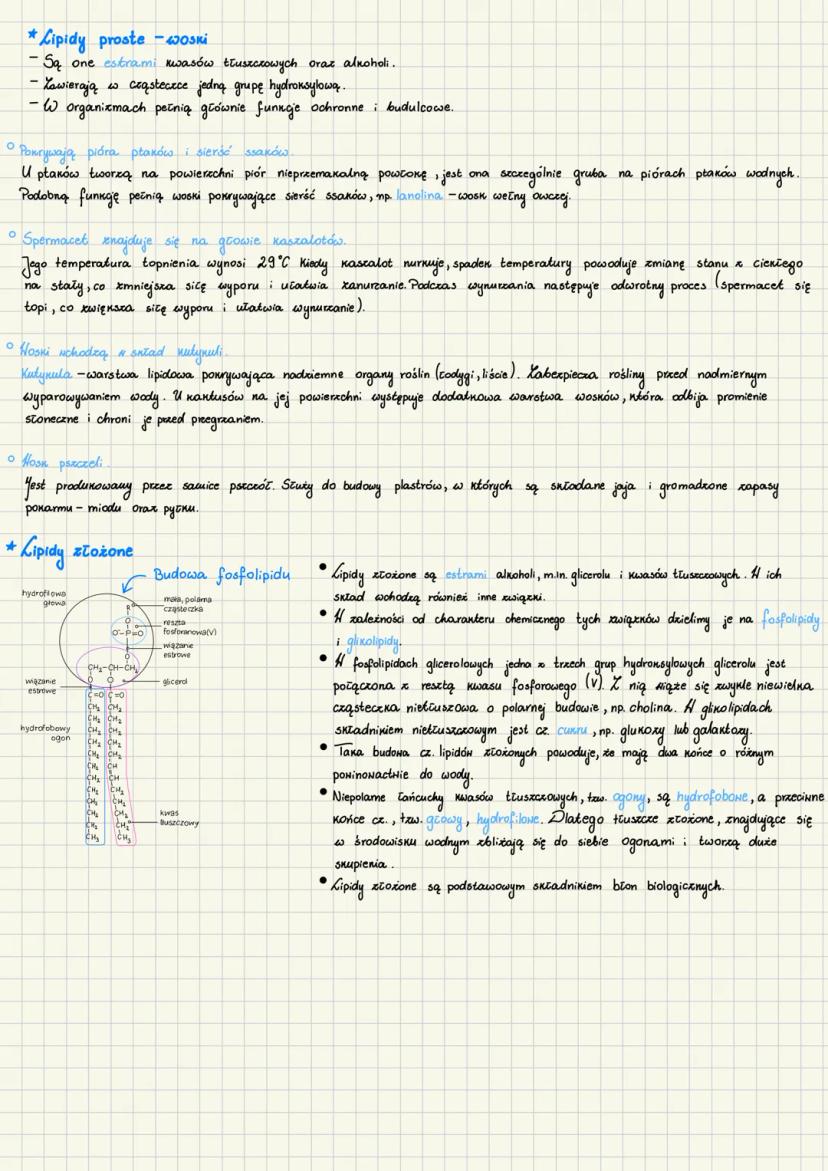 * Lipidy proste - woski
- Są one estrami kwasów tłuszczowych oraz alkoholi.
- Zawierają w cząsteczce jedną grupę hydroksylową.
- W organizmach pełnią głównie funkcje ochronne i budulcowe.
° Pokrywają pióra ptaków i sierść ssaków.
U ptaków tworzą na powierzchni piór nieprzemakalną powłokę, jest ona szczególnie gruba na piórach ptaków wodnych.
Podobną funkcję pełnią woski pokrywające sierść ssaków, np. lanolina - wosk wełny owczej.
° Spermacet znajduje się na głowie kaszalotów.
Jego temperatura topnienia wynosi 29°C Kiedy kaszalot nurkuje, spadek temperatury powoduje zmianę stanu z ciekłego
na stały, co zmniejsza siłę wyporu i ułatwia zanurzanie. Podczas wynurzania następuje odwrotny proces (spermacet się
topi, co zwiększa siłę wyporu i ułatwia wynurzanie).
° Woski wchodzą w skład kutykuli.
Kutykula - warstwa lipidowa pokrywająca nadziemne organy roślin (łodygi, liście). Zabezpiecza rośliny przed nadmiernym
wyparowywaniem wody. U kaktusów na jej powierzchni występuje dodatkowa warstwa wosków, która odbija promienie
słoneczne i chroni je przed przegrzaniem.
° Wosk pszczeli.
Jest produkowany przez samice pszczół. Służy do budowy plastrów, w których są składane jaja i gromadzone zapasy
pokarmu - miodu oraz pyłku.
* Lipidy złożone
Budowa fosfolipidu
hydrofilowa
głowa
mała, polarna
cząsteczka
R
O
reszta
fosforanowa(V)
O⁻-P=O
O
wiązanie
estrowe
CH₂-CH-CH₂
O O
glicerol
wiązanie
estrowe
C=O C=O
CH₂ CH₂
CH₂ CH₂
hydrofobowy
ogon
CH₂ CH₂
CH₂ CH₂
CH₂ CH₂
CH₂ CH
CH₂ CH
CH₂ CH₂
CH₂ CH₂
CH₂ CH₂
kwas
tłuszczowy
CH₂ CH₂
CH₃ CH₃
• Lipidy złożone są estrami alkoholi, m.in. glicerolu i kwasów tłuszczowych. W ich
skład wchodzą również inne związki.
• W zależności od charakteru chemicznego tych związków dzielimy je na fosfolipidy
i glikolipidy.
• W fosfolipidach glicerolowych jedna z trzech grup hydroksylowych glicerolu jest
połączona z resztą kwasu fosforowego (V). Z nią wiąże się zwykle niewielka
cząsteczka nietłuszczowa o polarnej budowie, np. cholina. W glikolipidach
składnikiem nietłuszczowym jest cz. cukru, np. glukozy lub galaktozy.
• Taka budowa cz. lipidów złożonych powoduje, że mają dwa końce o różnym
powinowactwie do wody.
• Niepolarne łańcuchy kwasów tłuszczowych, tzw. ogony, są hydrofobowe, a przeciwne
końce cz., tzw. głowy, hydrofilowe. Dlatego tłuszcze złożone, znajdujące się
w środowisku wodnym zbliżają się do siebie ogonami i tworzą duże
skupienia.
• Lipidy złożone są podstawowym składnikiem błon biologicznych.